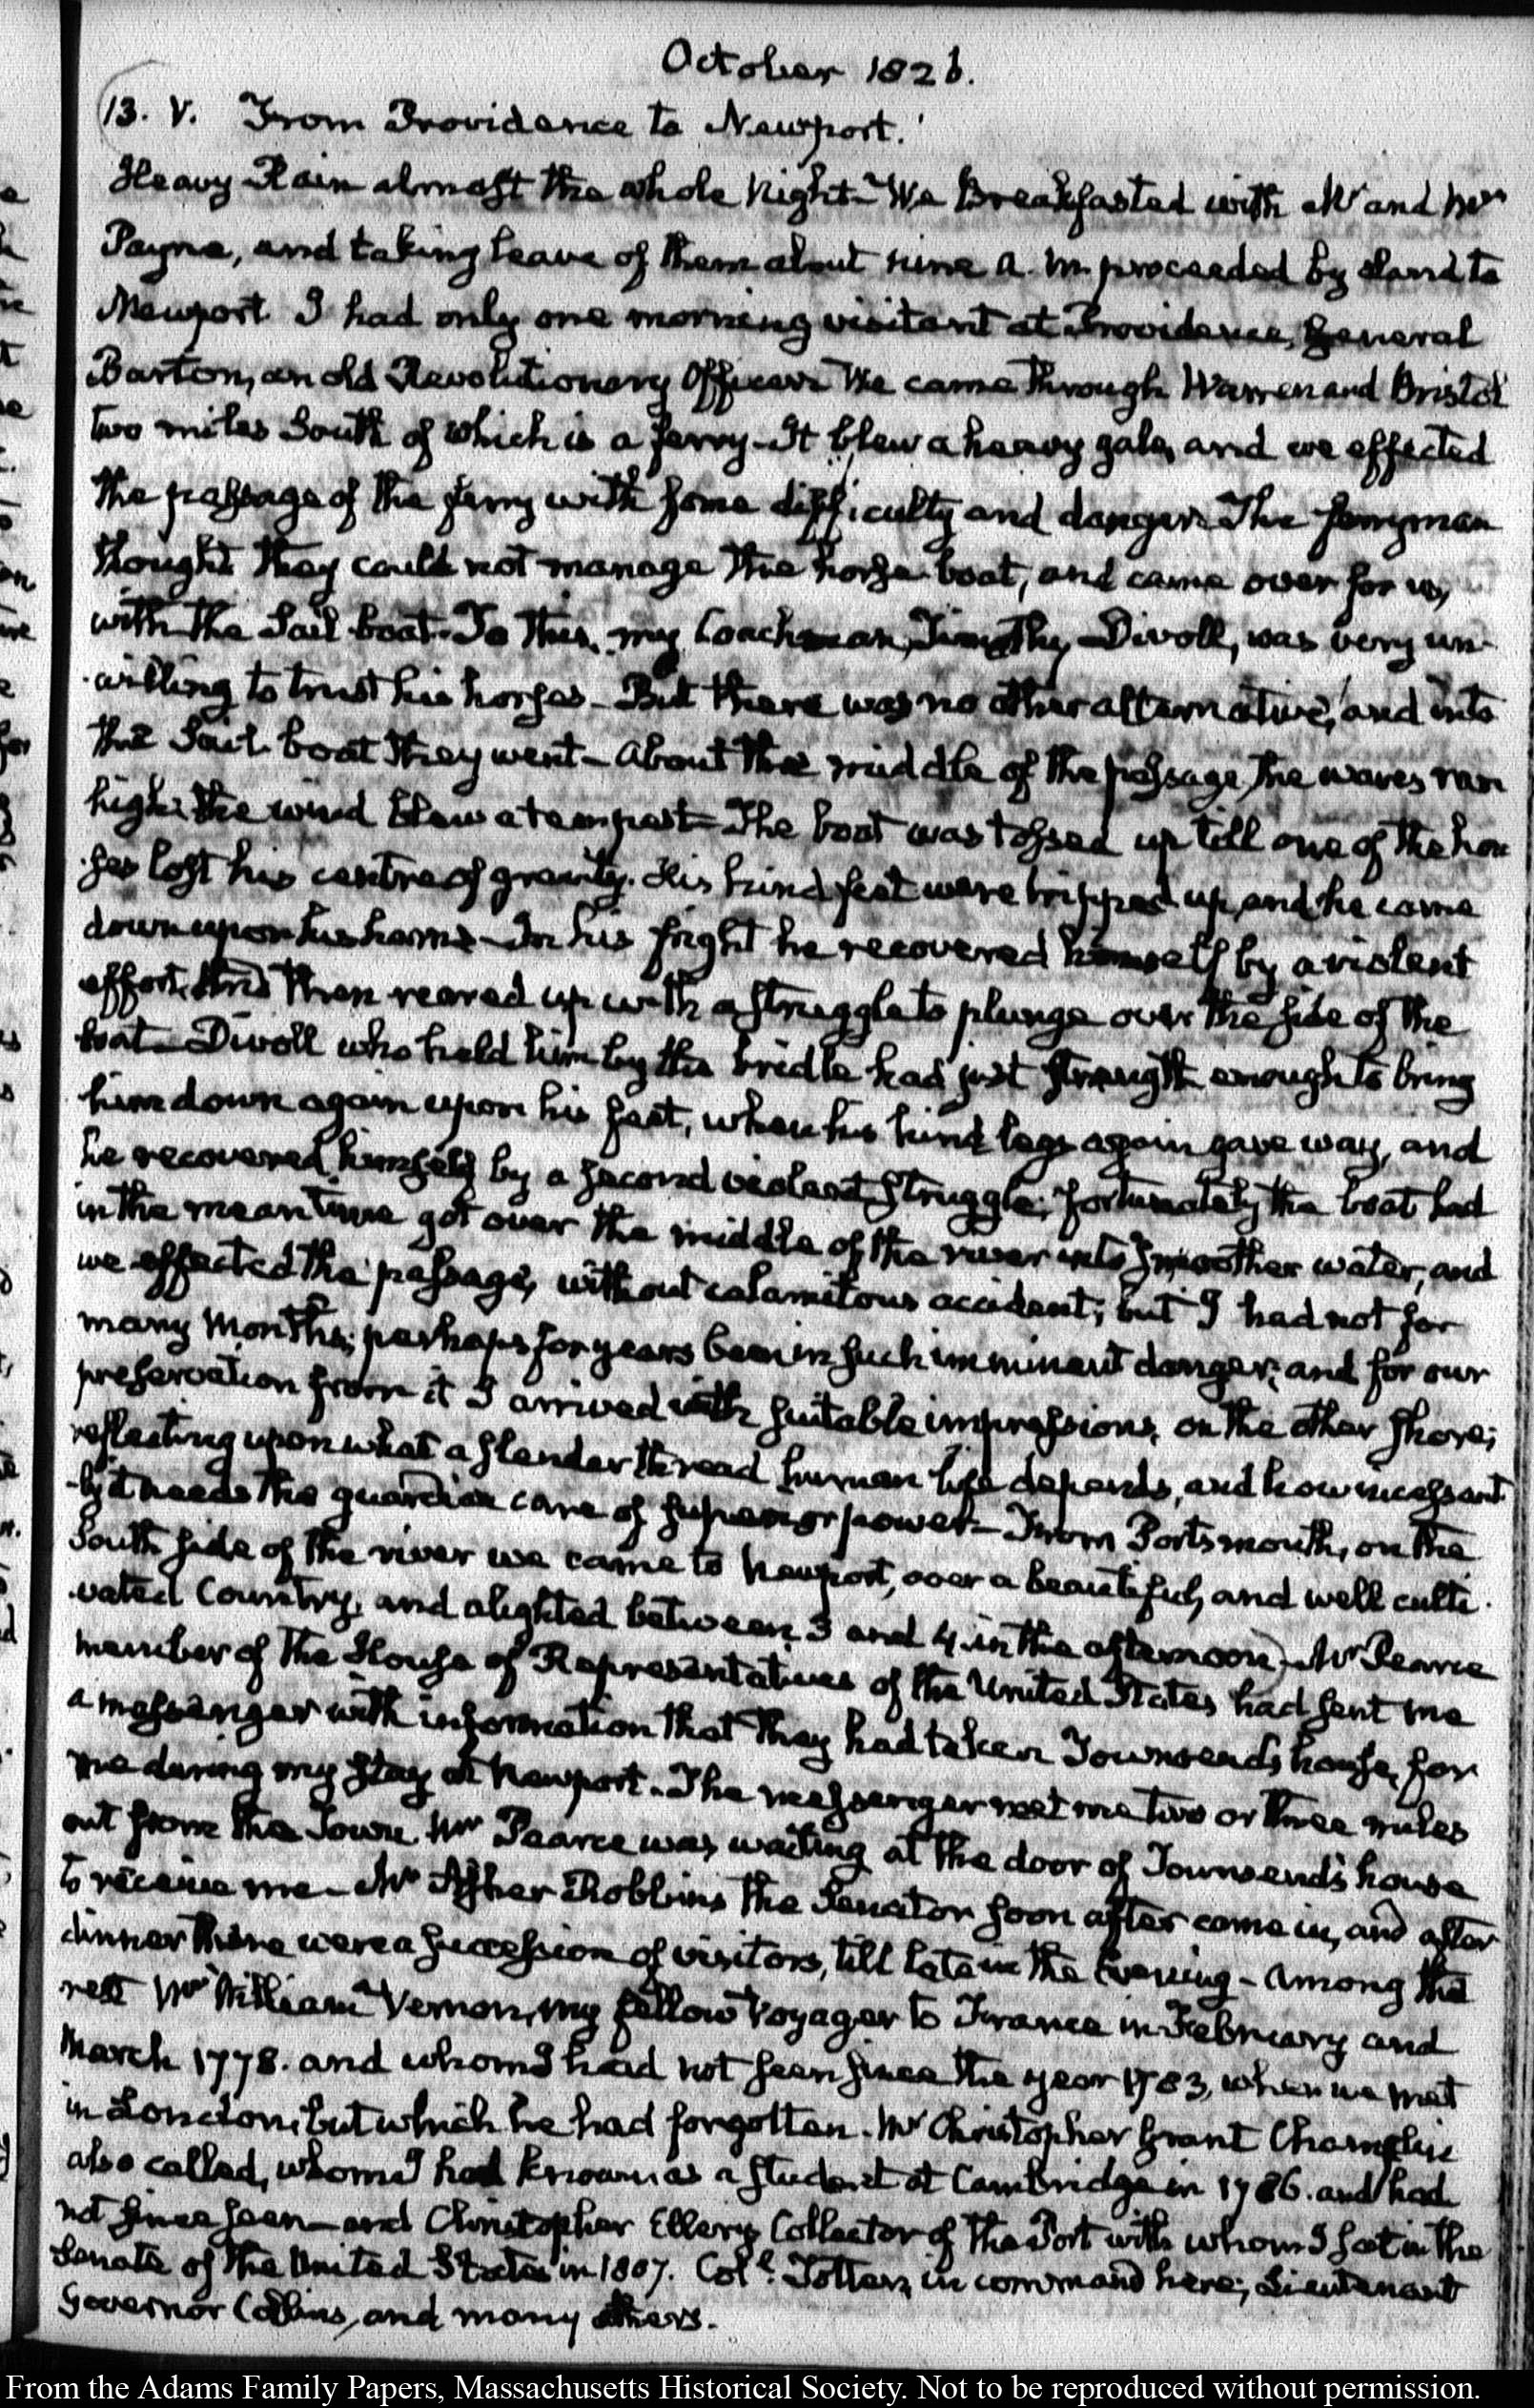 October 1826.
13. V. From Providence to Newport.
Heavy Rain almost the whole Night - We Breakfasted with Mr and Mrs
Payne, and taking leave of them about nine A.M. proceeded by Land to
Newport I had only one morning visitant at Providence, General
Barton, an old Revolutionary Officer We came through Warren and Bristol
two miles South of which is a ferry - It blew a heavy gale, and we effected
the passage of the ferry with some difficulty and danger. The ferryman
thought they could not manage the horse-boat, and came over for us,
with the Sail-boat. To this, my Coachman, Timothy Divoll, was very un-
-willing to trust his horses - But there was no other alternative, and into
the Sail-boat they went - About the middle of the passage, the waves ran
high; the wind blew a tempest - The boat was tossed up till one of the hor
ses lost his centre of gravity. His hind feet were tripped up, and he came
down upon his hams - In his fright he recovered himself by a violent
effort, and then reared up with a struggle to plunge over the side of the
boat - Divoll who held him by the bridle had just strength enough to bring
him down again upon his feet, when his hind legs again gave way, and
he recovered himself by a second violent struggle; fortunately the boat had
in the mean time got over the middle of the river into smoother water, and
we effected the passage, without calamitous accident; but I had not for
many Months; perhaps for years been in such imminent danger; and for our
preservation from it I arrived with suitable impressions, on the other shore;
reflecting upon what a slender thread human life depends, and how incessant
-ly it needs the guardian care of superior power - From Portsmouth, on the
South side of the river we came to Newport, over a beautiful, and well culti-
-vated Country, and alighted between 3 and 4 in the afternoon - Mr Pearce
member of the House of Representatives of the United States had sent me
a messenger with information that they had taken Townsend's house, for
me during my stay at Newport - The messenger met me two or three miles
out from the Town. Mr Pearce was waiting at the door of Townsend's house
to receive me - Mr Asher Robbins the Senator soon after came in, and after
dinner there were a succession of visitors, till late in the Evening - Among the
rest Mr William Vernon, my fellow Voyager to France in February and
March 1778. and whom I had not seen since the year 1783, when we met
in London; but which he had forgotten. Mr Christopher Grant Champlin
also called, whom I had known as a student at Cambridge in 1786. and had
not since seen - and Christopher Ellery Collector of the Port with whom I sat in the
Senate of the United States in 1807. Coll. Totten, in command here; Lieutenant
Governor Collins, and many others.
From the Adams Family Papers, Massachusetts Historical Society. Not to be reproduced without permission.